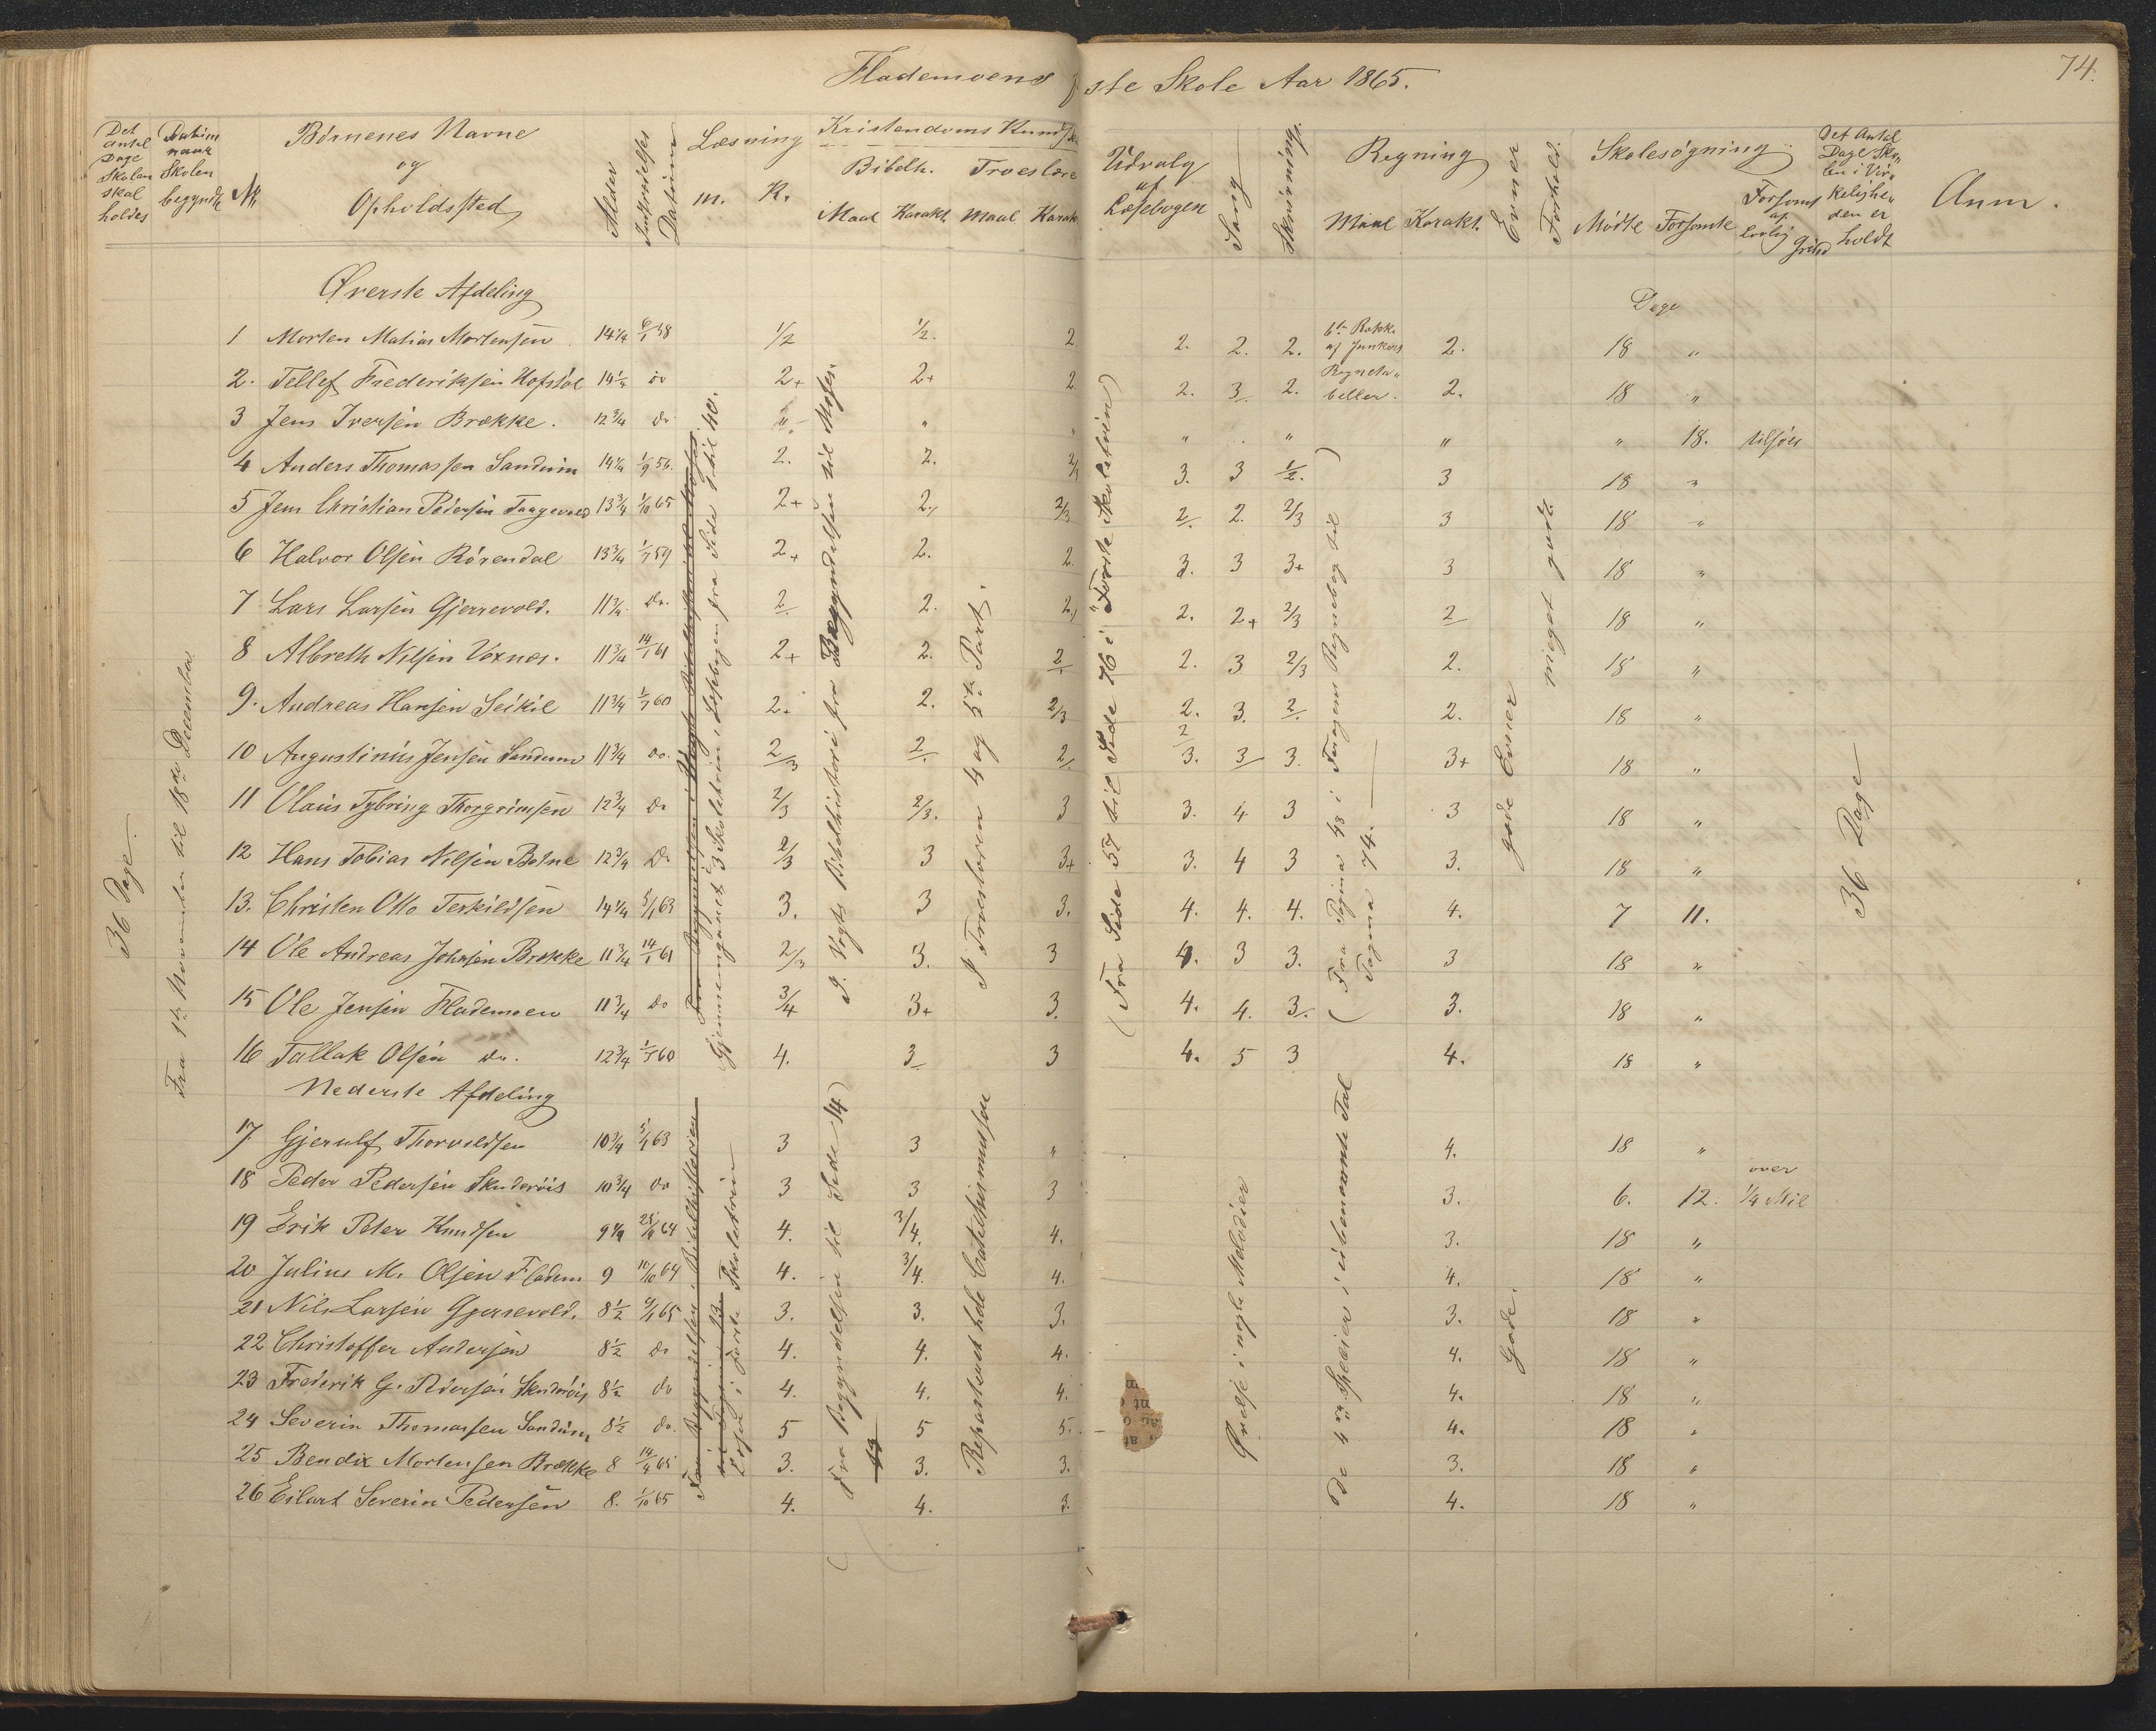 74.
Flademoens faste Skole Aar 1865.
Det antal Dage Skolen skal holdes
Datum naar Skolen begyndte
No
Børnenes Navne og Opholdssted
Alder
Indtrædelses Datum
Læsning
m. K.
Kristendoms Kundskab
Bibelh. Troeslære
Maal Karakt. Maal Karakt
Udvalg af Læsebogen
Sang
Skrivning.
Regning
Maal Karakt.
Evner
Forhold.
Skolesøgning
Mødte Forsømte Forsømt af lovlig Grund
Det Antal Dage Skolen i Virkeligheden er holdt
Anm.
Øverste Afdeling
Dage
1 Morten Matias Mortensen 14 1/4 1/2 1/2. 2 2. 2. 2. 2. 18 "
2. Tellef Frederiksen Hofstøl do 2+ 2+ 2 2. 3 2. 2. 18 "
3 Jens Iversen Brække. 12 3/4 do " " " " " " " 18. tilsøes
4 Anders Thomassen Sandum 2. 2. 2/3 3. 3 1/2. 3 18 "
5 Jens Christian Pedersen 13 3/4 1/10 65 2+ 2. 2/3 2. 2. 2/3 3 18 "
6 Halvor Olsen Rørendal 13 3/4 1/7 59 2+ 2. 2. 3. 3 3+ 3 18 "
7 Lars Larsen Gjerrevold. 11 3/4 do. 2 2. 2. 2. 2+ 2/3 2 18 "
8 Albreth Nilsen Vexnes. 11 3/4 14/1 61 2+ 2. 2 2. 3 2/3 2. 18 "
9. Andreas Hansen Seikil 11 3/4 1/7 60 2. 2. 2/3 2. 3. 2. 2. 18 "
10 Augustinus Jensen Sandum 11 3/4 do. 2/3 2 2 3. 3 3. 3+ 18 "
11 Olaus Tybring Thorgrimsen 12 3/4 do 2/3 2/3. 3 3. 4 3 3 18 "
12 Hans Tobias Nilsen Botne 12 3/4 do 2/3 3 3+ 3. 4 3 3. 18 "
13. Christen Otto Terkildsen 14 1/4 5/1 63 3. 3 3. 4. 4. 4. 4. 7 11.
14 Ole Andreas Johnsen Brække 11 3/4 14/1 61 2/3 3. 3 4. 3 3. 3 18 "
15 Ole Jensen Flademoen 11 3/4 do 3/4 3+ 3. 4. 4. 3. 3. 18 "
16 Tallak Olsen do. 12 3/4 1/7 60 4. 3 3 4. 5 3 4. 18 "
Nederste Afdeling
17 Gjerulf Thorvaldsen 10 3/4 5/1 63 3 3 " 4. 18 "
18 Peder Pedersen Skuderøis 10 3/4 do 3 3 3 3. 6. 12. over 1/4 Mil
19 Erik Peter Knudsen 9 1/4 4. 3/4. 4. 3. 18 "
20 Julius M. Olsen Fladem. 9 10/10 64 4. 3/4. 4. 4. 18 "
21 Nils Larsen Gjerrevold. 8 1/2 3. 3. 3. 3. 18 "
22 Christoffer Andersen 8 1/2 do 4. 4. 4. 4. 18 "
23 Frederik G. Pedersen Skuderøis 8 1/2 do 4. 4. 4. 4. 18 "
24 Severin Thomassen Sandum 8 1/2 do. 5 5 5. 4. 18 "
25 Bendix Mortensen Brække 8 14/4 65 3. 3. 3. 3. 18 "
26 Eilart Severin Pedersen 8. 1/10 65 4. 4. 3. 4. 18 "
36 Dage.
Fra 1ste November til 18de December
Gjennemgaaet 3 Skoletrin i Læsebogen fra Side 1 til 40.
I Vogts Bibelhistorie fra Begyndelsen til Moses.
I Troeslæren 4 og 5te Part.
(Fra Side 57 til Side 76 i "Første Skoletrin)
6te Rækk. af Junkers Regnetabeller.
(Fra Pagina 48 i Faygens Regnebog til Pagina 74.
gode Evner
meget godt
36 Dage
Læse i første Skoletrin
(Fra Begyndelsen til Side 14)
Repeteret hele Catechismussen
Øvelse i nogle Melodier
De 4 Specier i ubenævnte Tal
Gode.